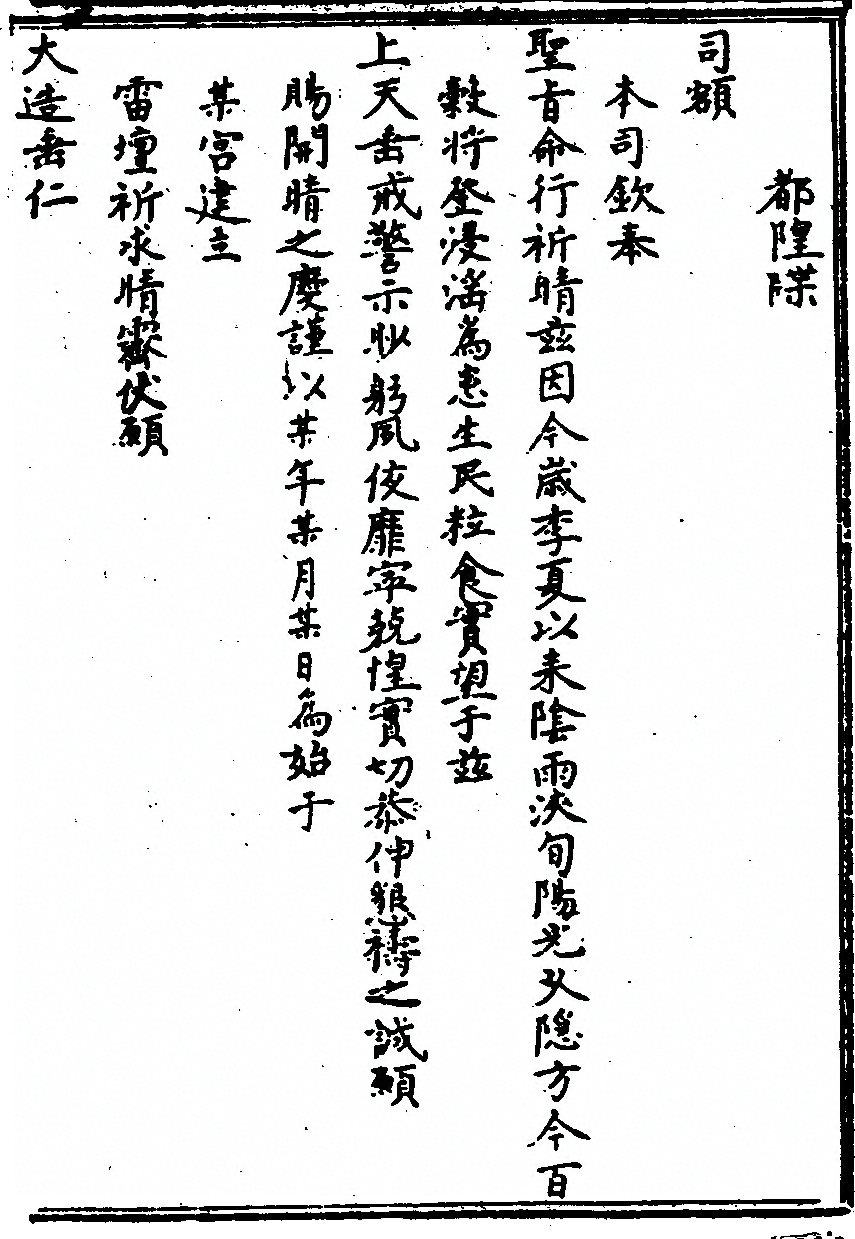 都隍牒
司額
本司欽奉
聖旨命行祈晴玆因今歲季夏以来陰雨浹旬陽光久隱方今百
穀將登浸滛為患生民粒食實望于兹
上天垂戒警示眇躬夙夜靡寧兢惶實切恭伸懇禱之誠願
賜開晴之慶謹以某年某月某日為始于
某宮建立
雷壇祈求晴霽伏願
大造垂仁